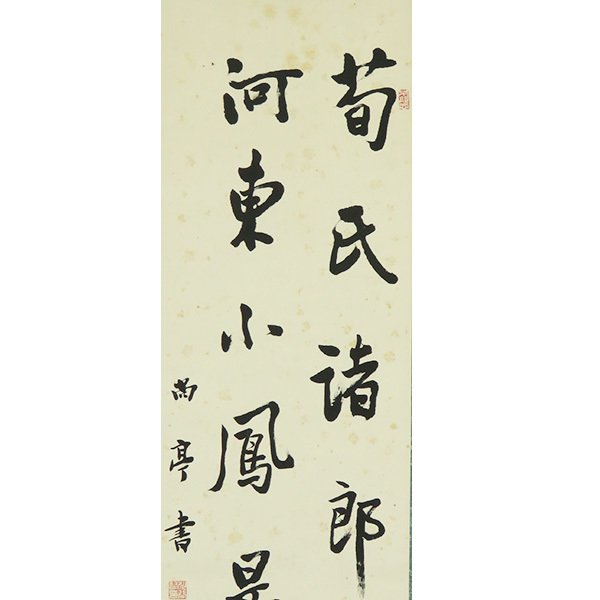 荀氏諸郎
河東小鳳
尚亭書